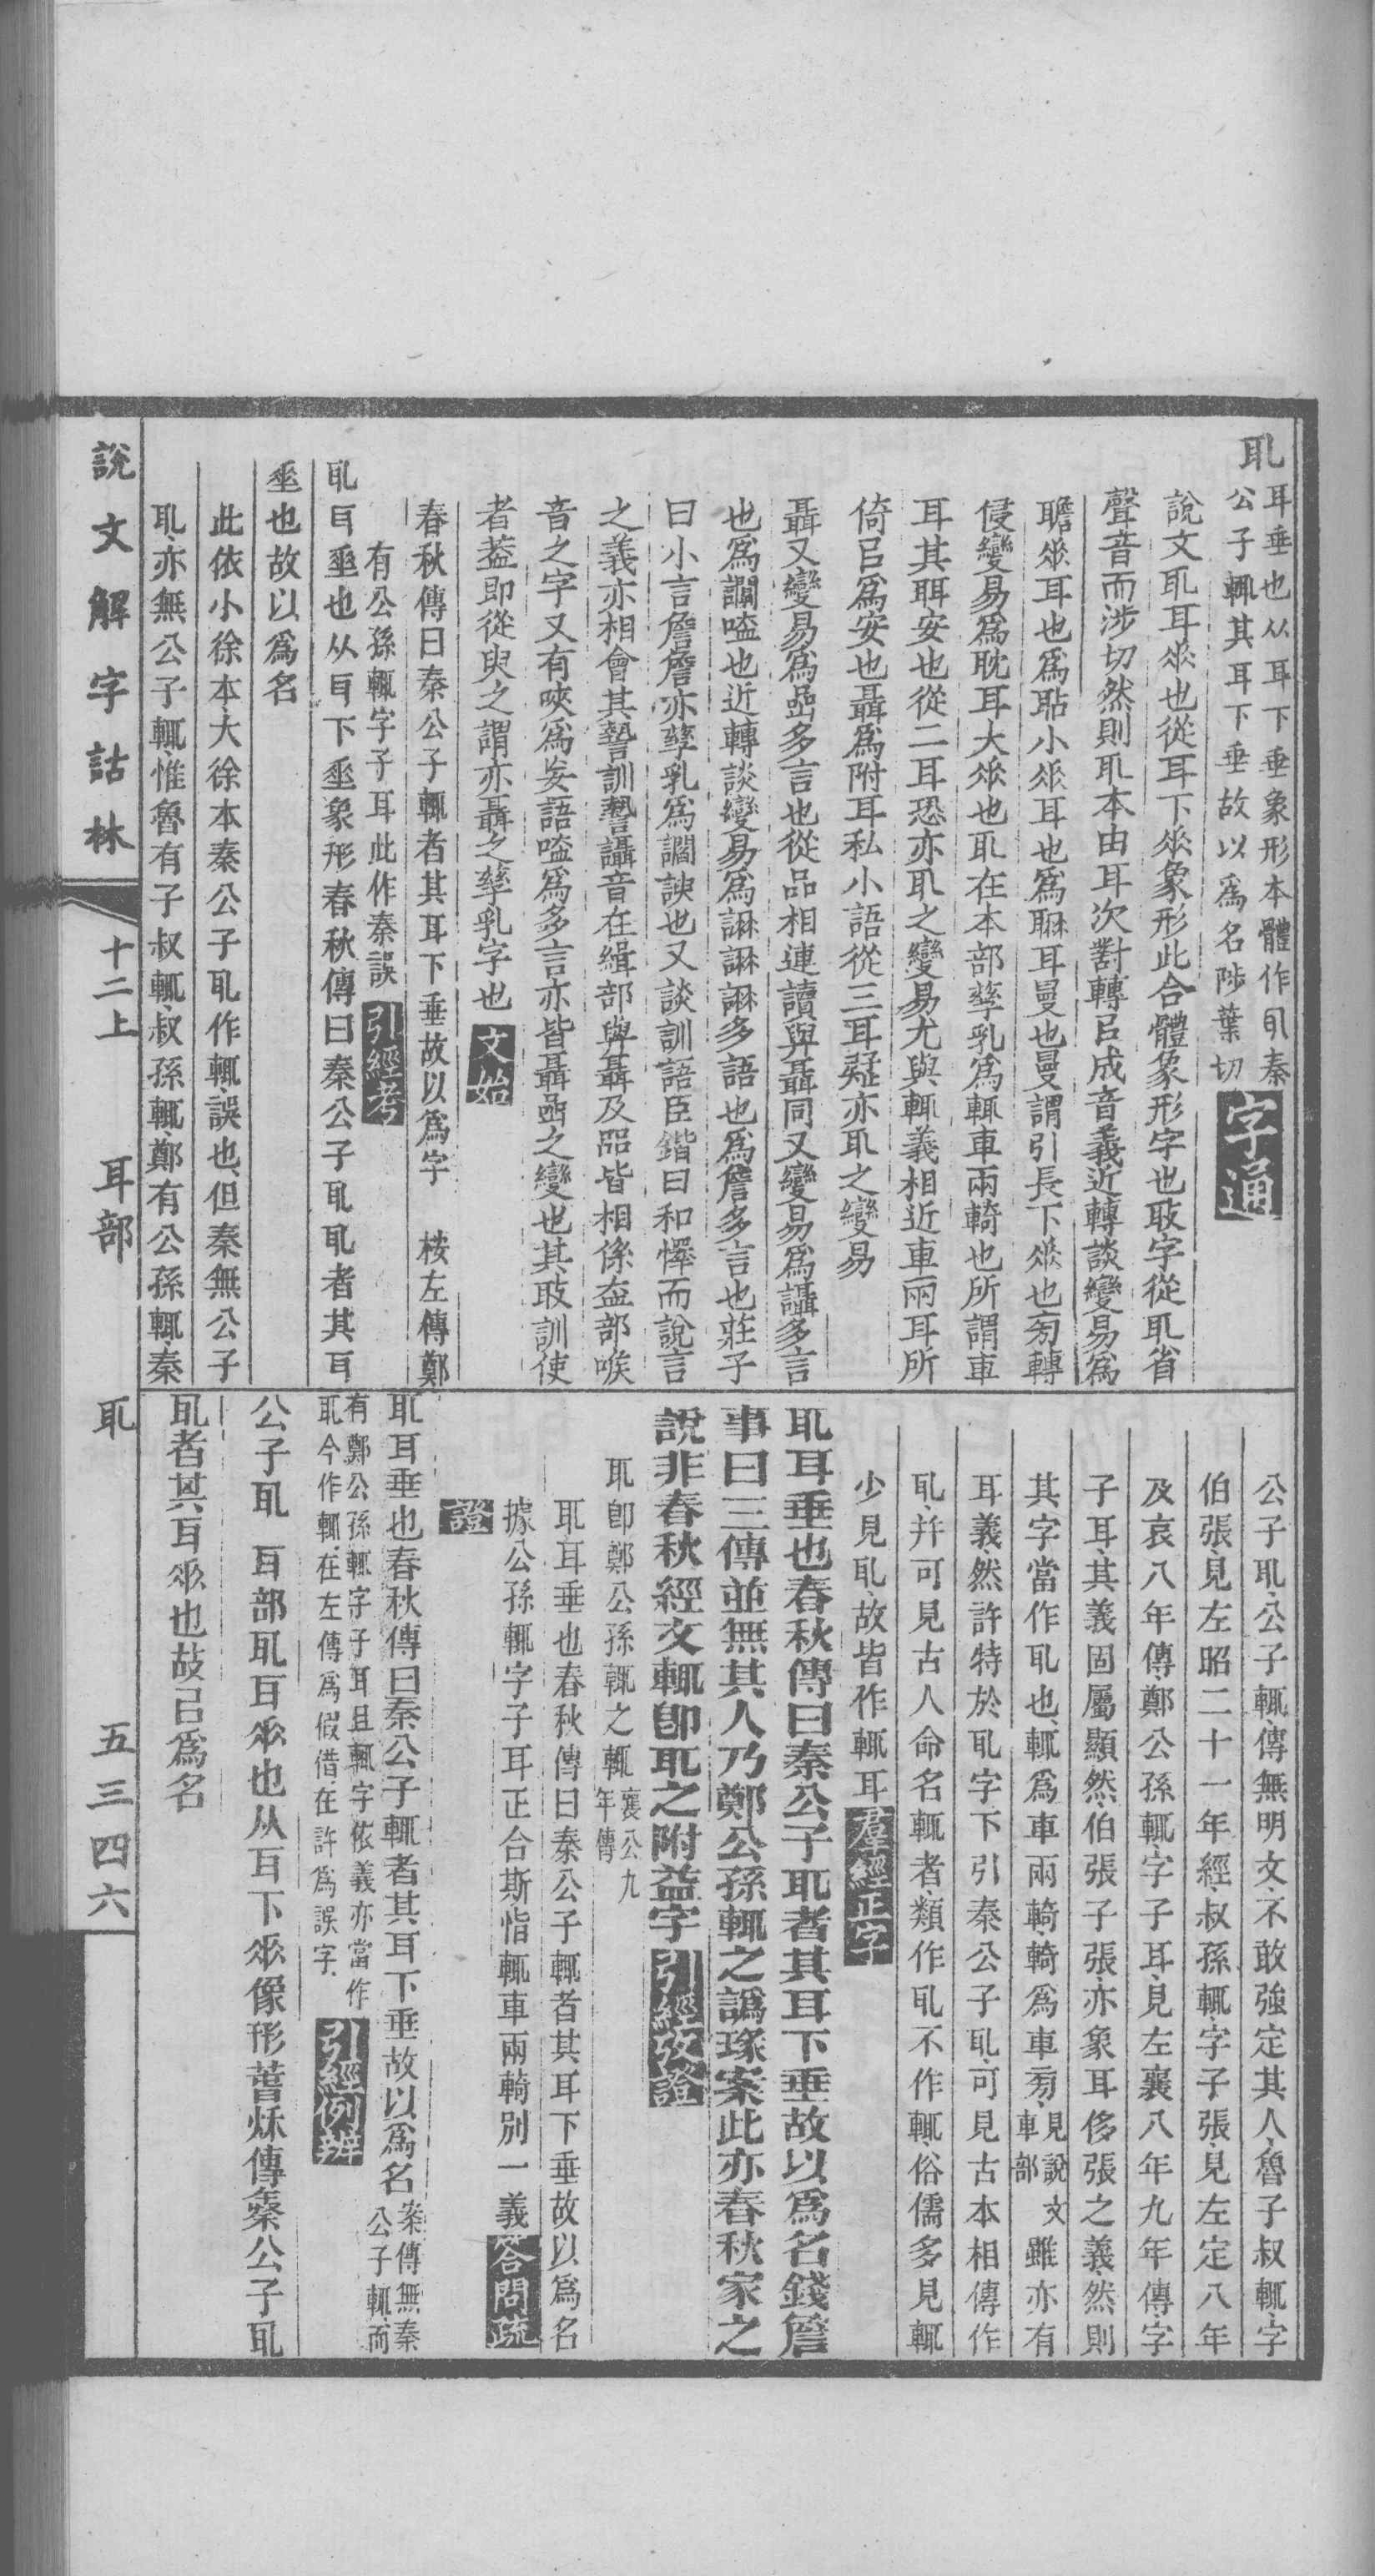 耴耳垂也从耳下垂象形本體作𦔮秦
公子輒其耳下垂故以爲名陟葉切字通
說文耴耳𠂹也從耳下𠂹象形此合體象形字也耴字從耴省
聲音而涉切然則耴本由耳次對轉㠯成音義近轉談變易爲
瞻𠂹耳也爲耵小𠂹耳也爲𦗕耳曼也曼謂引長下𠂹也旁轉
侵變易爲耽耳大𠂹也耴在本部孳乳爲輒車兩輢也所謂車
耳其聑安也從二耳恐亦耴之變易尤與輒義相近車兩耳所
倚㠯爲安也聶爲附耳私小語從三耳疑亦耴之變易
聶又變易爲嵒多言也從品相連讀與聶同又變易爲讘多言
也爲讕嗑也近轉談變易爲䛶䛶䛶多語也爲詹多言也莊子
曰小言詹詹亦孳乳爲讇諛也又談訓語臣鍇曰和懌而說言
之義亦相會其讋訓慹讋讘音在緝部與聶及㗊皆相係盍部喉
音之字又有唊爲妄語嗑爲多言亦皆聶嵒之變也其㪉訓使
者葢即從臾之謂亦聶之孳乳字也文始
春秋傳曰秦公子輒者其耳下垂故以爲字　桉左傳鄭
有公孫輒字子耳此作秦誤引經考
耴耳𡍮也从耳下𡍮象形春秋傳曰秦公子耴耴者其耳
𡍮也故以爲名
此依小徐本大徐本秦公子耴作輒誤也但秦無公子
耴亦無公子輒惟魯有子叔輒叔孫輒鄭有公孫輒秦
公子耴公子輒傳無明文不敢強定其人魯子叔輒字
伯張見左昭二十一年經叔孫輒字子張見左定八年
及哀八年傳鄭公孫輒字子耳見左襄八年九年傳字
子耳其義固屬顯然伯張子張亦象耳侈張之義然則
其字當作耴也輒爲車兩輢輢爲車旁見說文車部雖亦有
耳義然許特於耴字下引秦公子耴可見古本相傳作
耴并可見古人命名輒者類作耴不作輒俗儒多見輒
少見耴故皆作輒耳羣經正字
耴耳垂也春秋傳曰秦公子耴者其耳下垂故以爲名錢詹
事曰三傳並無其人乃鄭公孫輒之譌琢案此亦春秋家之
說非春秋經文輒卽耴之附益字引經攷證
耴卽鄭公孫輒之輒襄公九年傳
耴耳垂也春秋傳曰秦公子輒者其耳下垂故以爲名
據公孫輒字子耳正合斯恉輒車兩輢別一義答問疏
證
耴耳垂也春秋傳曰秦公子輒者其耳下垂故以爲名案傳無秦公子輒而
有鄭公孫輒字子耳且輒字依義亦當作
耴今作輒在左傳爲假借在許爲誤字引經例辨
公子耴　耳部耴耳𠂹也从耳下𠂹像形萅秌傳秦公子耴
耴者其耳𠂹也故㠯爲名
說文解字詁林　十二上　耳部　耴　五三四六